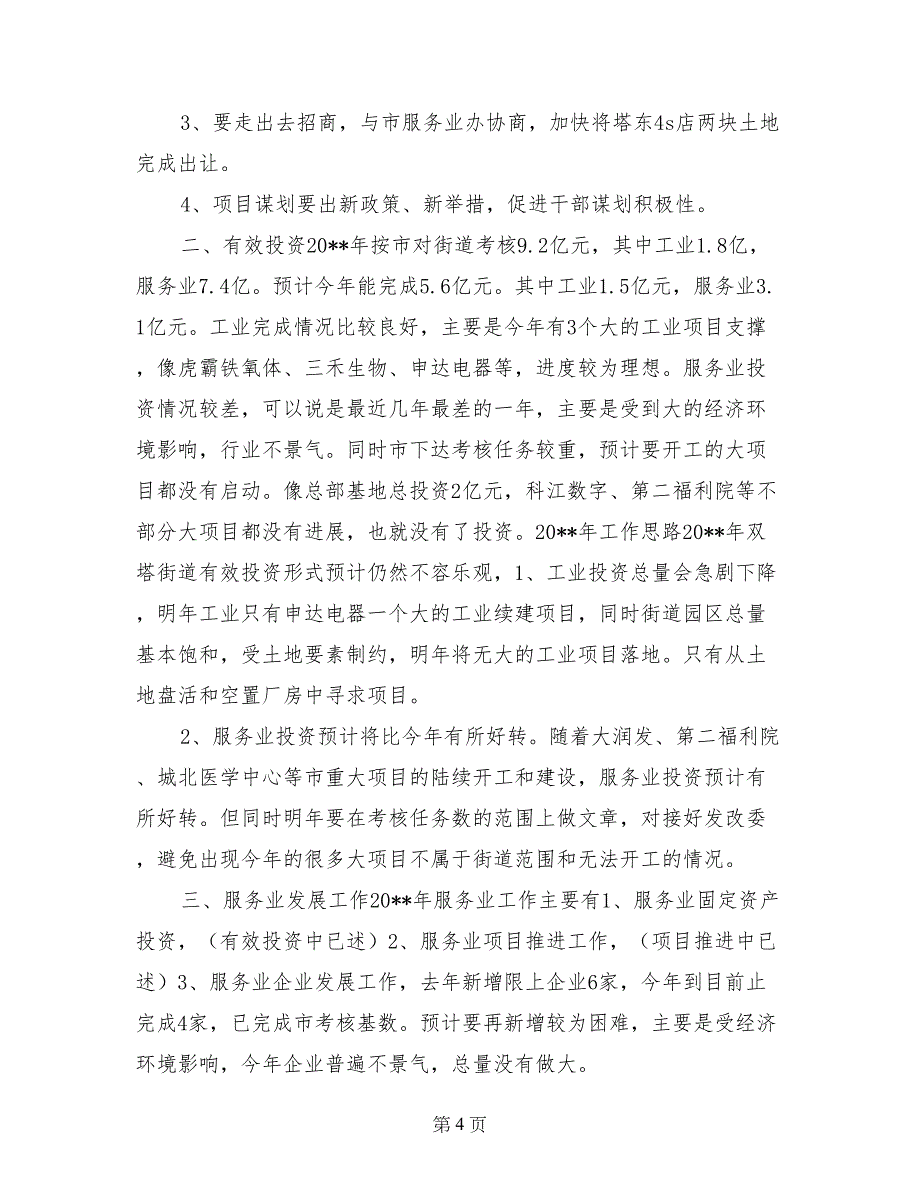 3、要走出去招商，与市服务业办协商，加快将塔东4s店两块土地
完成出让。
4、项目谋划要出新政策、新举措，促进干部谋划积极性。
二、有效投资20**年按市对街道考核9.2亿元，其中工业1.8亿，
服务业7.4亿。预计今年能完成5.6亿元。其中工业1.5亿元，服务业3.
1亿元。工业完成情况比较良好，主要是今年有3个大的工业项目支撑
，像虎霸铁氧体、三禾生物、申达电器等，进度较为理想。服务业投
资情况较差，可以说是最近几年最差的一年，主要是受到大的经济环
境影响，行业不景气。同时市下达考核任务较重，预计要开工的大项
目都没有启动。像总部基地总投资2亿元，科江数字、第二福利院等不
部分大项目都没有进展，也就没有了投资。20**年工作思路20**年双
塔街道有效投资形式预计仍然不容乐观，1、工业投资总量会急剧下降
，明年工业只有申达电器一个大的工业续建项目，同时街道园区总量
基本饱和，受土地要素制约，明年将无大的工业项目落地。只有从土
地盘活和空置厂房中寻求项目。
2、服务业投资预计将比今年有所好转。随着大润发、第二福利院
、城北医学中心等市重大项目的陆续开工和建设，服务业投资预计有
所好转。但同时明年要在考核任务数的范围上做文章，对接好发改委
，避免出现今年的很多大项目不属于街道范围和无法开工的情况。
三、服务业发展工作20**年服务业工作主要有1、服务业固定资产
投资，（有效投资中已述）2、服务业项目推进工作，（项目推进中已
述）3、服务业企业发展工作，去年新增限上企业6家，今年到目前止
完成4家，已完成市考核基数。预计要再新增较为困难，主要是受经济
环境影响，今年企业普遍不景气，总量没有做大。
第 4 页